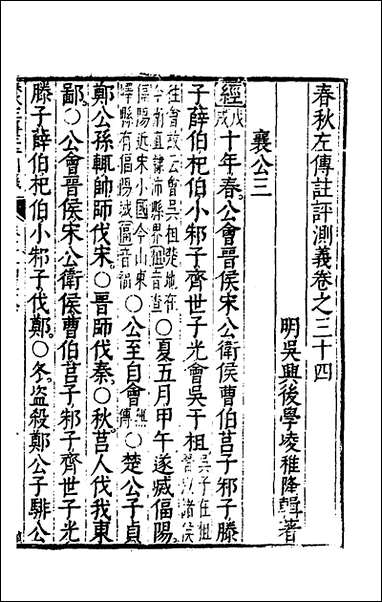 春秋左傳註評測義卷之三十四
明吳興後學凌稚隆輯著
襄公三
經戊戌十年春公會晉侯宋公衛侯曹伯莒子邾子滕
子薛伯杞伯小邾子齊世子光會吳于柤吳子在柤諸侯
往會故云會吳柤楚地在今南直隸沛縣界柤音查○夏五月甲午遂滅偪陽
偪陽近宋小國今山東嶧縣有偪陽城偪音○公至自會無傳○楚公子貞
鄭公孫輒帥師伐宋○晉師伐秦○秋莒人伐我東
鄙○公會晉侯宋公衛侯曹伯莒子邾子齊世子光
滕子薛伯杞伯小邾子伐鄭○冬盜殺鄭公子騑公